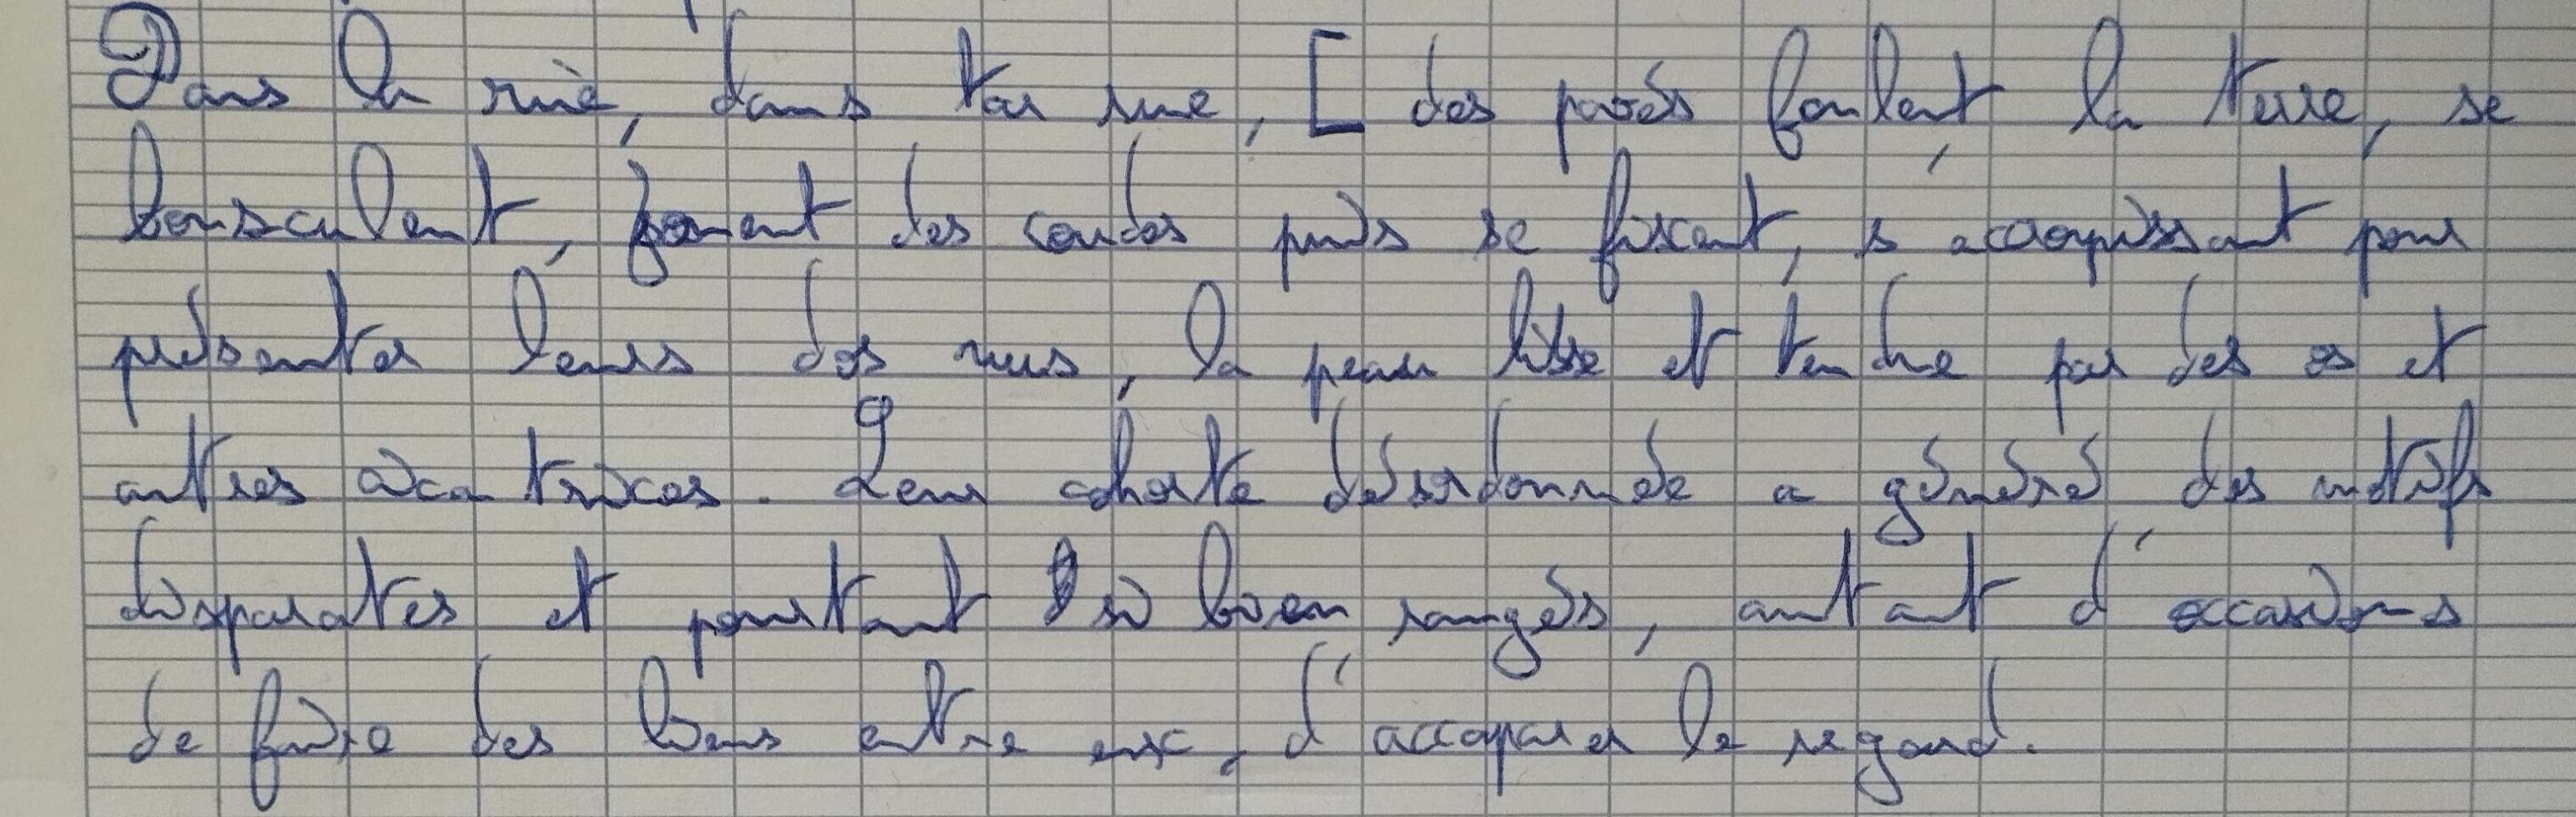 Dans la rue, dans ta rue, [ des pavés foulent la terre, se
bousculent, jouent des coudes puis se fixent, s'accroupissant pour
présenter leurs dos nus, la peau lisse et tendue par des os et
autres cicatrices. Leur cohorte désordonnée a généré des motifs
disparates et pourtant si bien rangés, autant d'occasions
de faire des liens entre eux, d'accaparer le regard.